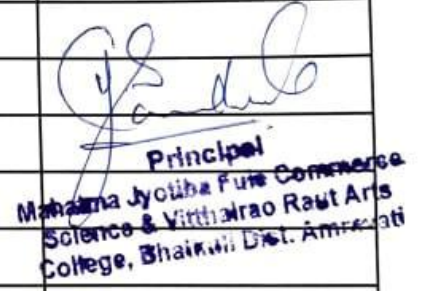 Principal
Mahatma Jyotiba Fule Commerce
Science & Vitthalrao Raut Arts
College, Bhatkuli Dist. Amravati